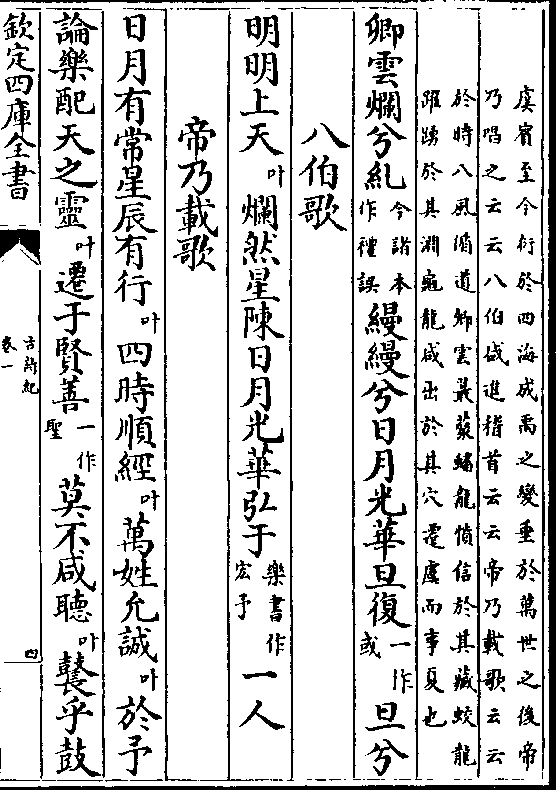 虞賓至今衍於四海成禹之變垂於萬世之後帝
乃唱之云云八伯咸進稽首云云帝乃載歌云云
於時八風循道卿雲叢藂蟠龍僨信於其藏蛟龍
踊躍於其淵龜龍咸出於其穴遷虞而事夏也
卿雲爛兮糺今諸本作禮誤縵縵兮日月光華旦復一作或旦兮
八伯歌
明明上天叶爛然星陳日月光華弘于樂書作宏予一人
帝乃載歌
日月有常星辰有行叶四時順經叶萬姓允誠叶於予
論樂配天之靈叶遷于賢善一作聖莫不咸聽叶鼚乎鼓
欽定四庫全書
古詩紀
卷一
四